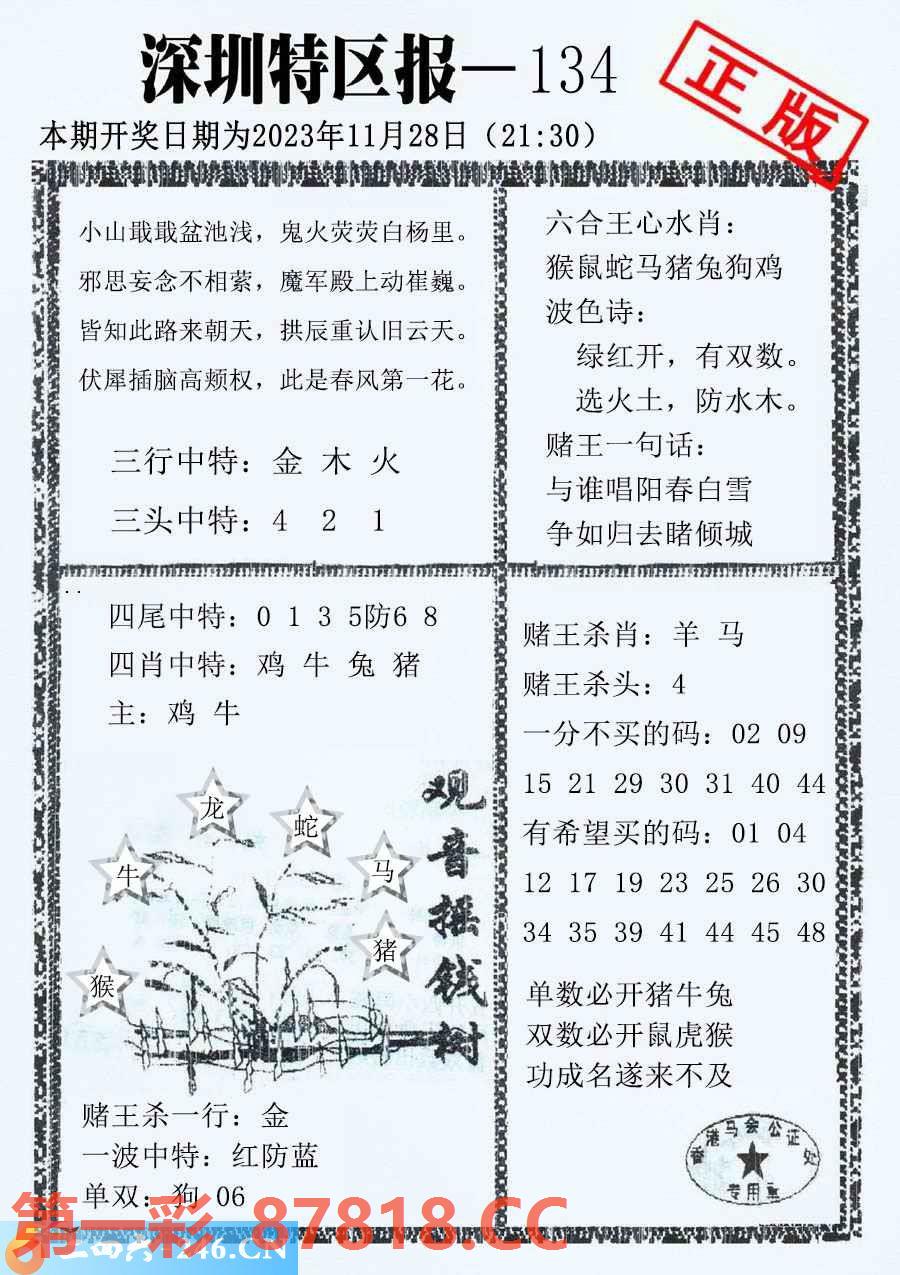 深圳特区报—134
正版
本期开奖日期为2023年11月28日（21:30）
小山戢戢盆池浅，鬼火荧荧白杨里。
邪思妄念不相萦，魔军殿上动崔巍。
皆知此路来朝天，拱辰重认旧云天。
伏犀插脑高颊权，此是春风第一花。
三行中特：金 木 火
三头中特：4 2 1
六合王心水肖：
猴鼠蛇马猪兔狗鸡
波色诗：
绿红开，有双数。
选火土，防水木。
赌王一句话：
与谁唱阳春白雪
争如归去睹倾城
四尾中特：0 1 3 5防6 8
四肖中特：鸡 牛 兔 猪
主：鸡 牛
龙
蛇
牛
马
猪
猴
观音摇钱树
赌王杀一行：金
一波中特：红防蓝
单双：狗 06
赌王杀肖：羊 马
赌王杀头：4
一分不买的码：02 09
15 21 29 30 31 40 44
有希望买的码：01 04
12 17 19 23 25 26 30
34 35 39 41 44 45 48
单数必开猪牛兔
双数必开鼠虎猴
功成名遂来不及
香港马会公证处
专用章
第一彩 87818.CC
246.CN